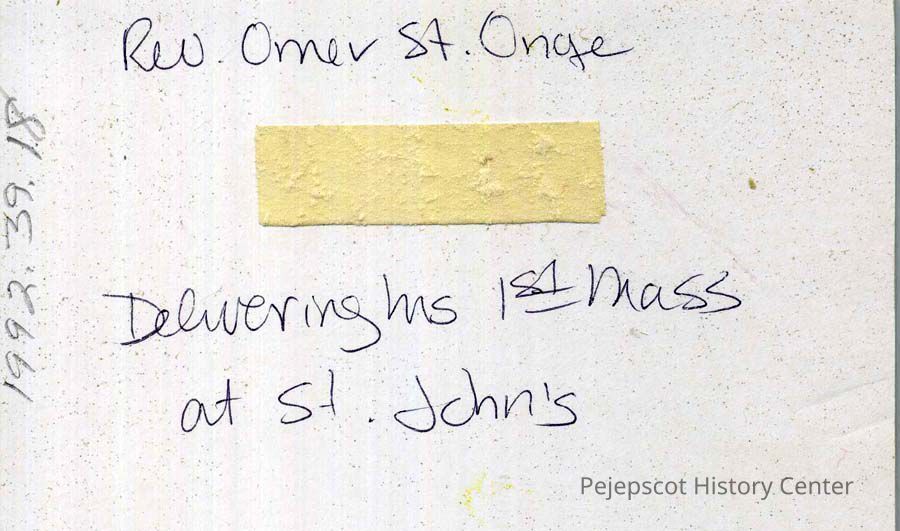 Rev. Omer St. Onge
Delivering his 1st Mass
at St. John's
1992.39.18
Pejepscot History Center